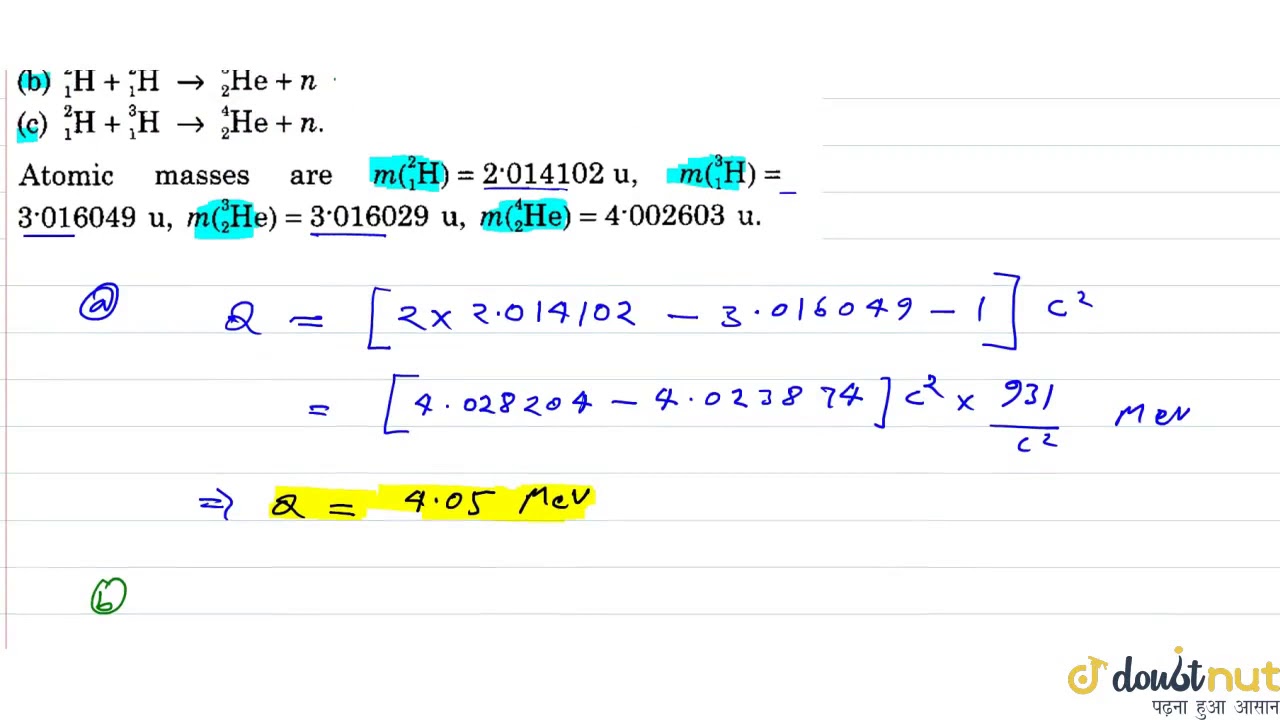 (b) ²₁H + ²₁H → ³₂He + n
(c) ²₁H + ³₁H → ⁴₂He + n.
Atomic masses are m(²₁H) = 2·014102 u, m(³₁H) =
3·016049 u, m(³₂He) = 3·016029 u, m(⁴₂He) = 4·002603 u.
(a) Q = [2 × 2.014102 − 3.016049 − 1] c²
= [4.028204 − 4.023874] c² × 931/c² MeV
⇒ Q = 4.05 MeV
(b)
doubtnut
पढ़ना हुआ आसान